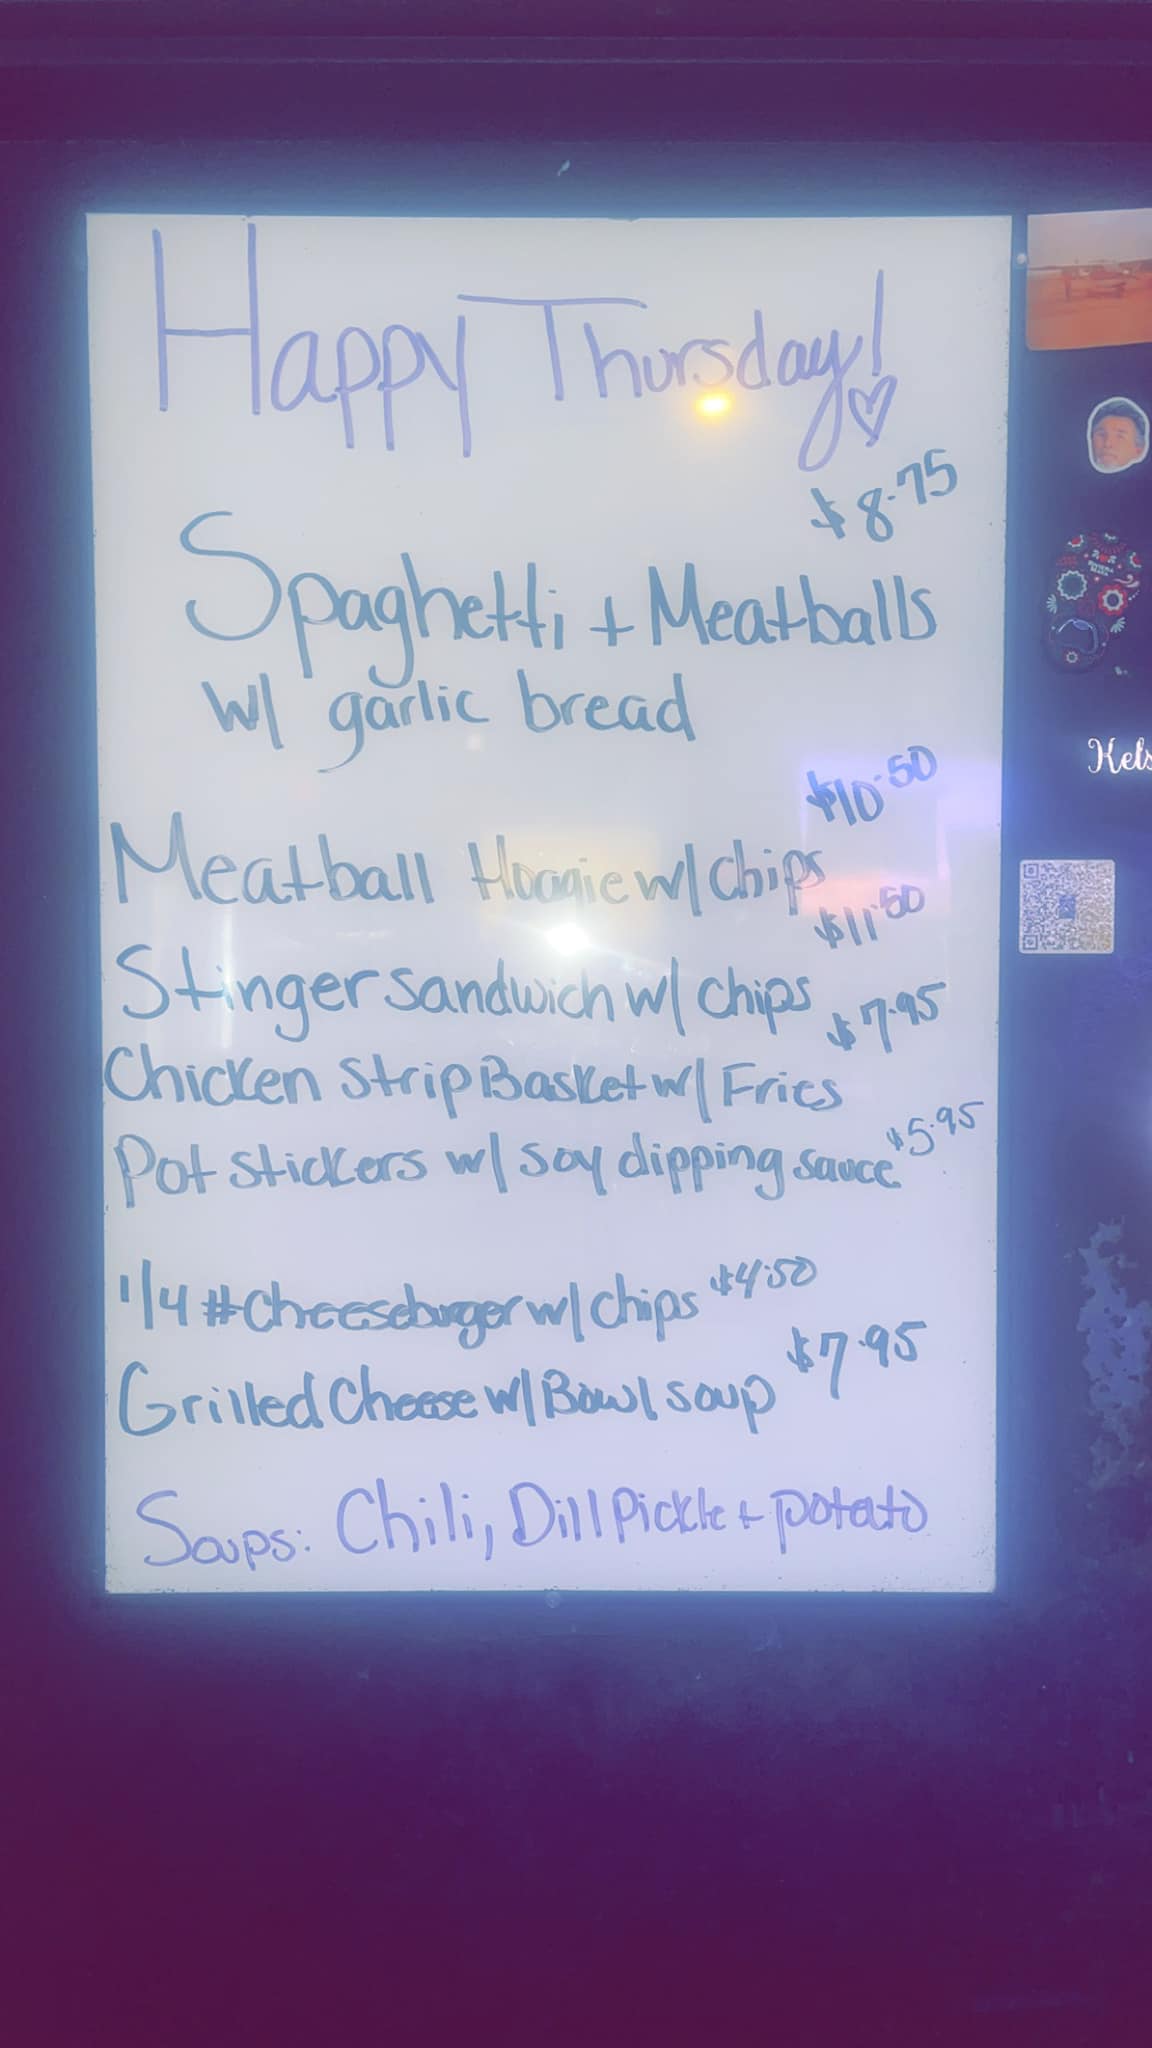 Happy Thursday!
$8.75
Spaghetti + Meatballs
w/ garlic bread
$10.50
Meatball Hoagie w/ chips
$11.50
Stinger sandwich w/ chips
$7.95
Chicken Strip Basket w/ Fries
Pot stickers w/ soy dipping sauce $5.95
1/4 # Cheeseburger w/ chips $4.50
Grilled Cheese w/ Bowl soup $7.95
Soups: Chili, Dill Pickle + potato
Kels